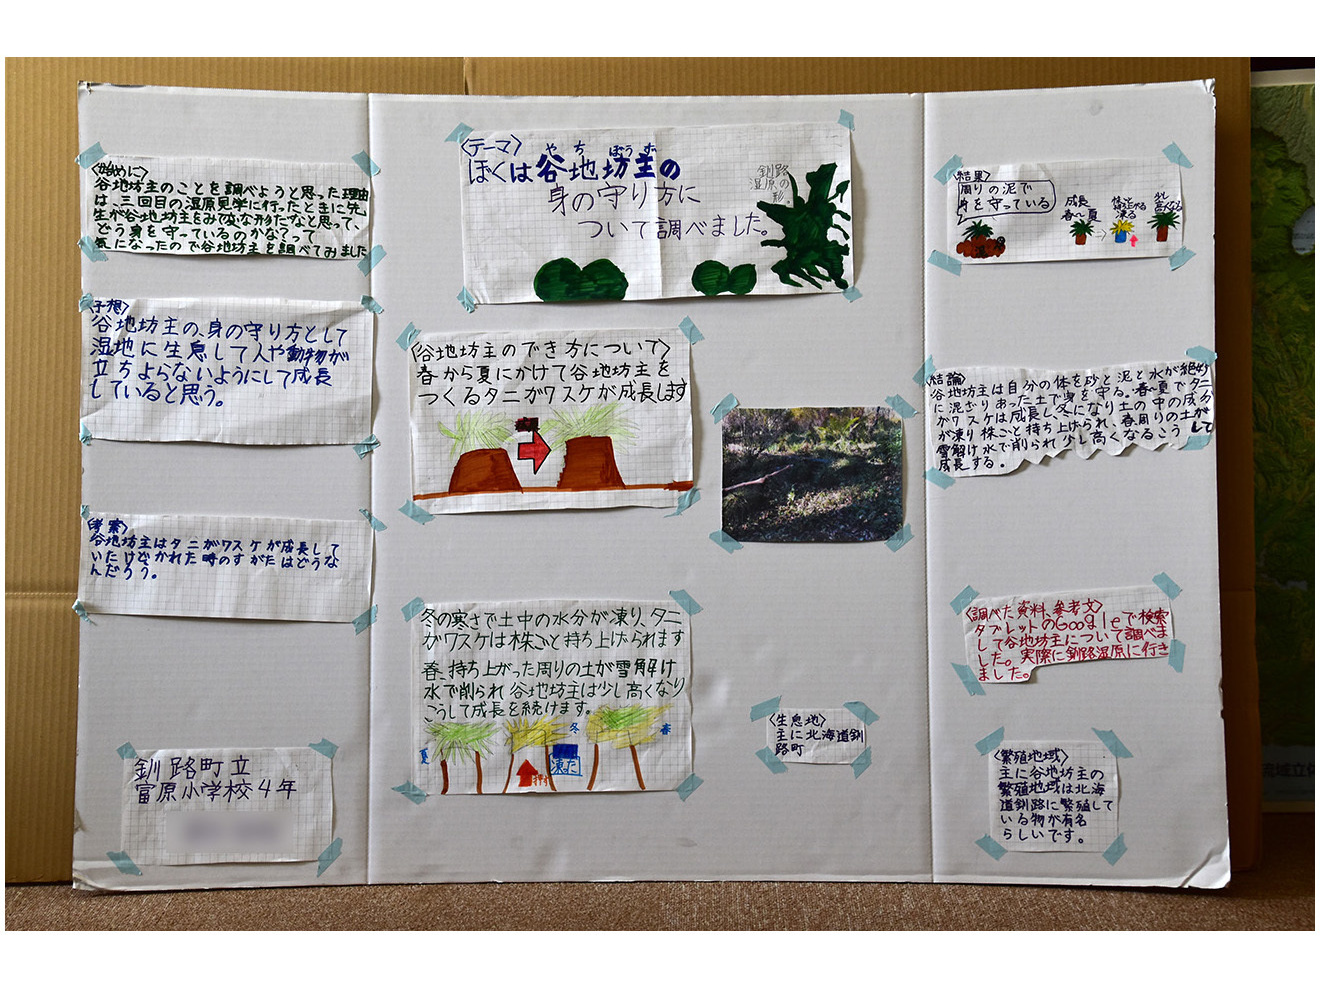 〈始めに〉
谷地坊主のことを調べようと思った理由
は、三回目の湿原見学に行ったときに先
生が谷地坊主をみて変な形だなと思って、
どう身を守っているのかなてって
気になったので谷地坊主を調べてみました
〈予想〉
谷地坊主の、身の守り方として
湿地に生息して人や動物が
立ちよらないようにして成長
していると思う。
〈考察〉
谷地坊主はタニガワスケが成長して
いたけどかれた時のすがたはどうな
んだろう。
釧路町立
富原小学校4年
〈テーマ〉
やちぼうず
ぼくは谷地坊主の
身の守り方に
ついて調べました。
釧路
湿原の
形
〈谷地坊主のでき方について〉
春から夏にかけて谷地坊主を
つくるタニガワスケが成長します
成長
冬の寒さで土中の水分が凍り、タニ
ガワスケは株ごと持ち上げられます
春、持ち上がった周りの土が雪解け
水で削られ谷地坊主は少し高くなり
こうして成長を続けます。
夏
冬
春
凍った
〈生息地〉
主に北海道釧
路町
〈結果〉
周りの泥で
身を守っている
成長
春〜夏
凍る
少し
高くなる
〈結論〉
谷地坊主は自分の体を砂と泥と水が絶妙
に混ざりあった土で身を守る。春〜夏でタニ
ガワスケは成長し冬になり土の中の成分
が凍り株ごと持ち上げられ、春周りの土が
雪解け水で削られ少し高くなるこうして
成長する。
〈調べた資料、参考文〉
タブレットのGoogleで検索
して谷地坊主について調べま
した。実際に釧路湿原に行き
ました。
〈繁殖地域〉
主に谷地坊主の
繁殖地域は北海
道釧路に繁殖して
いる物が有名
らしいです。
流域立体